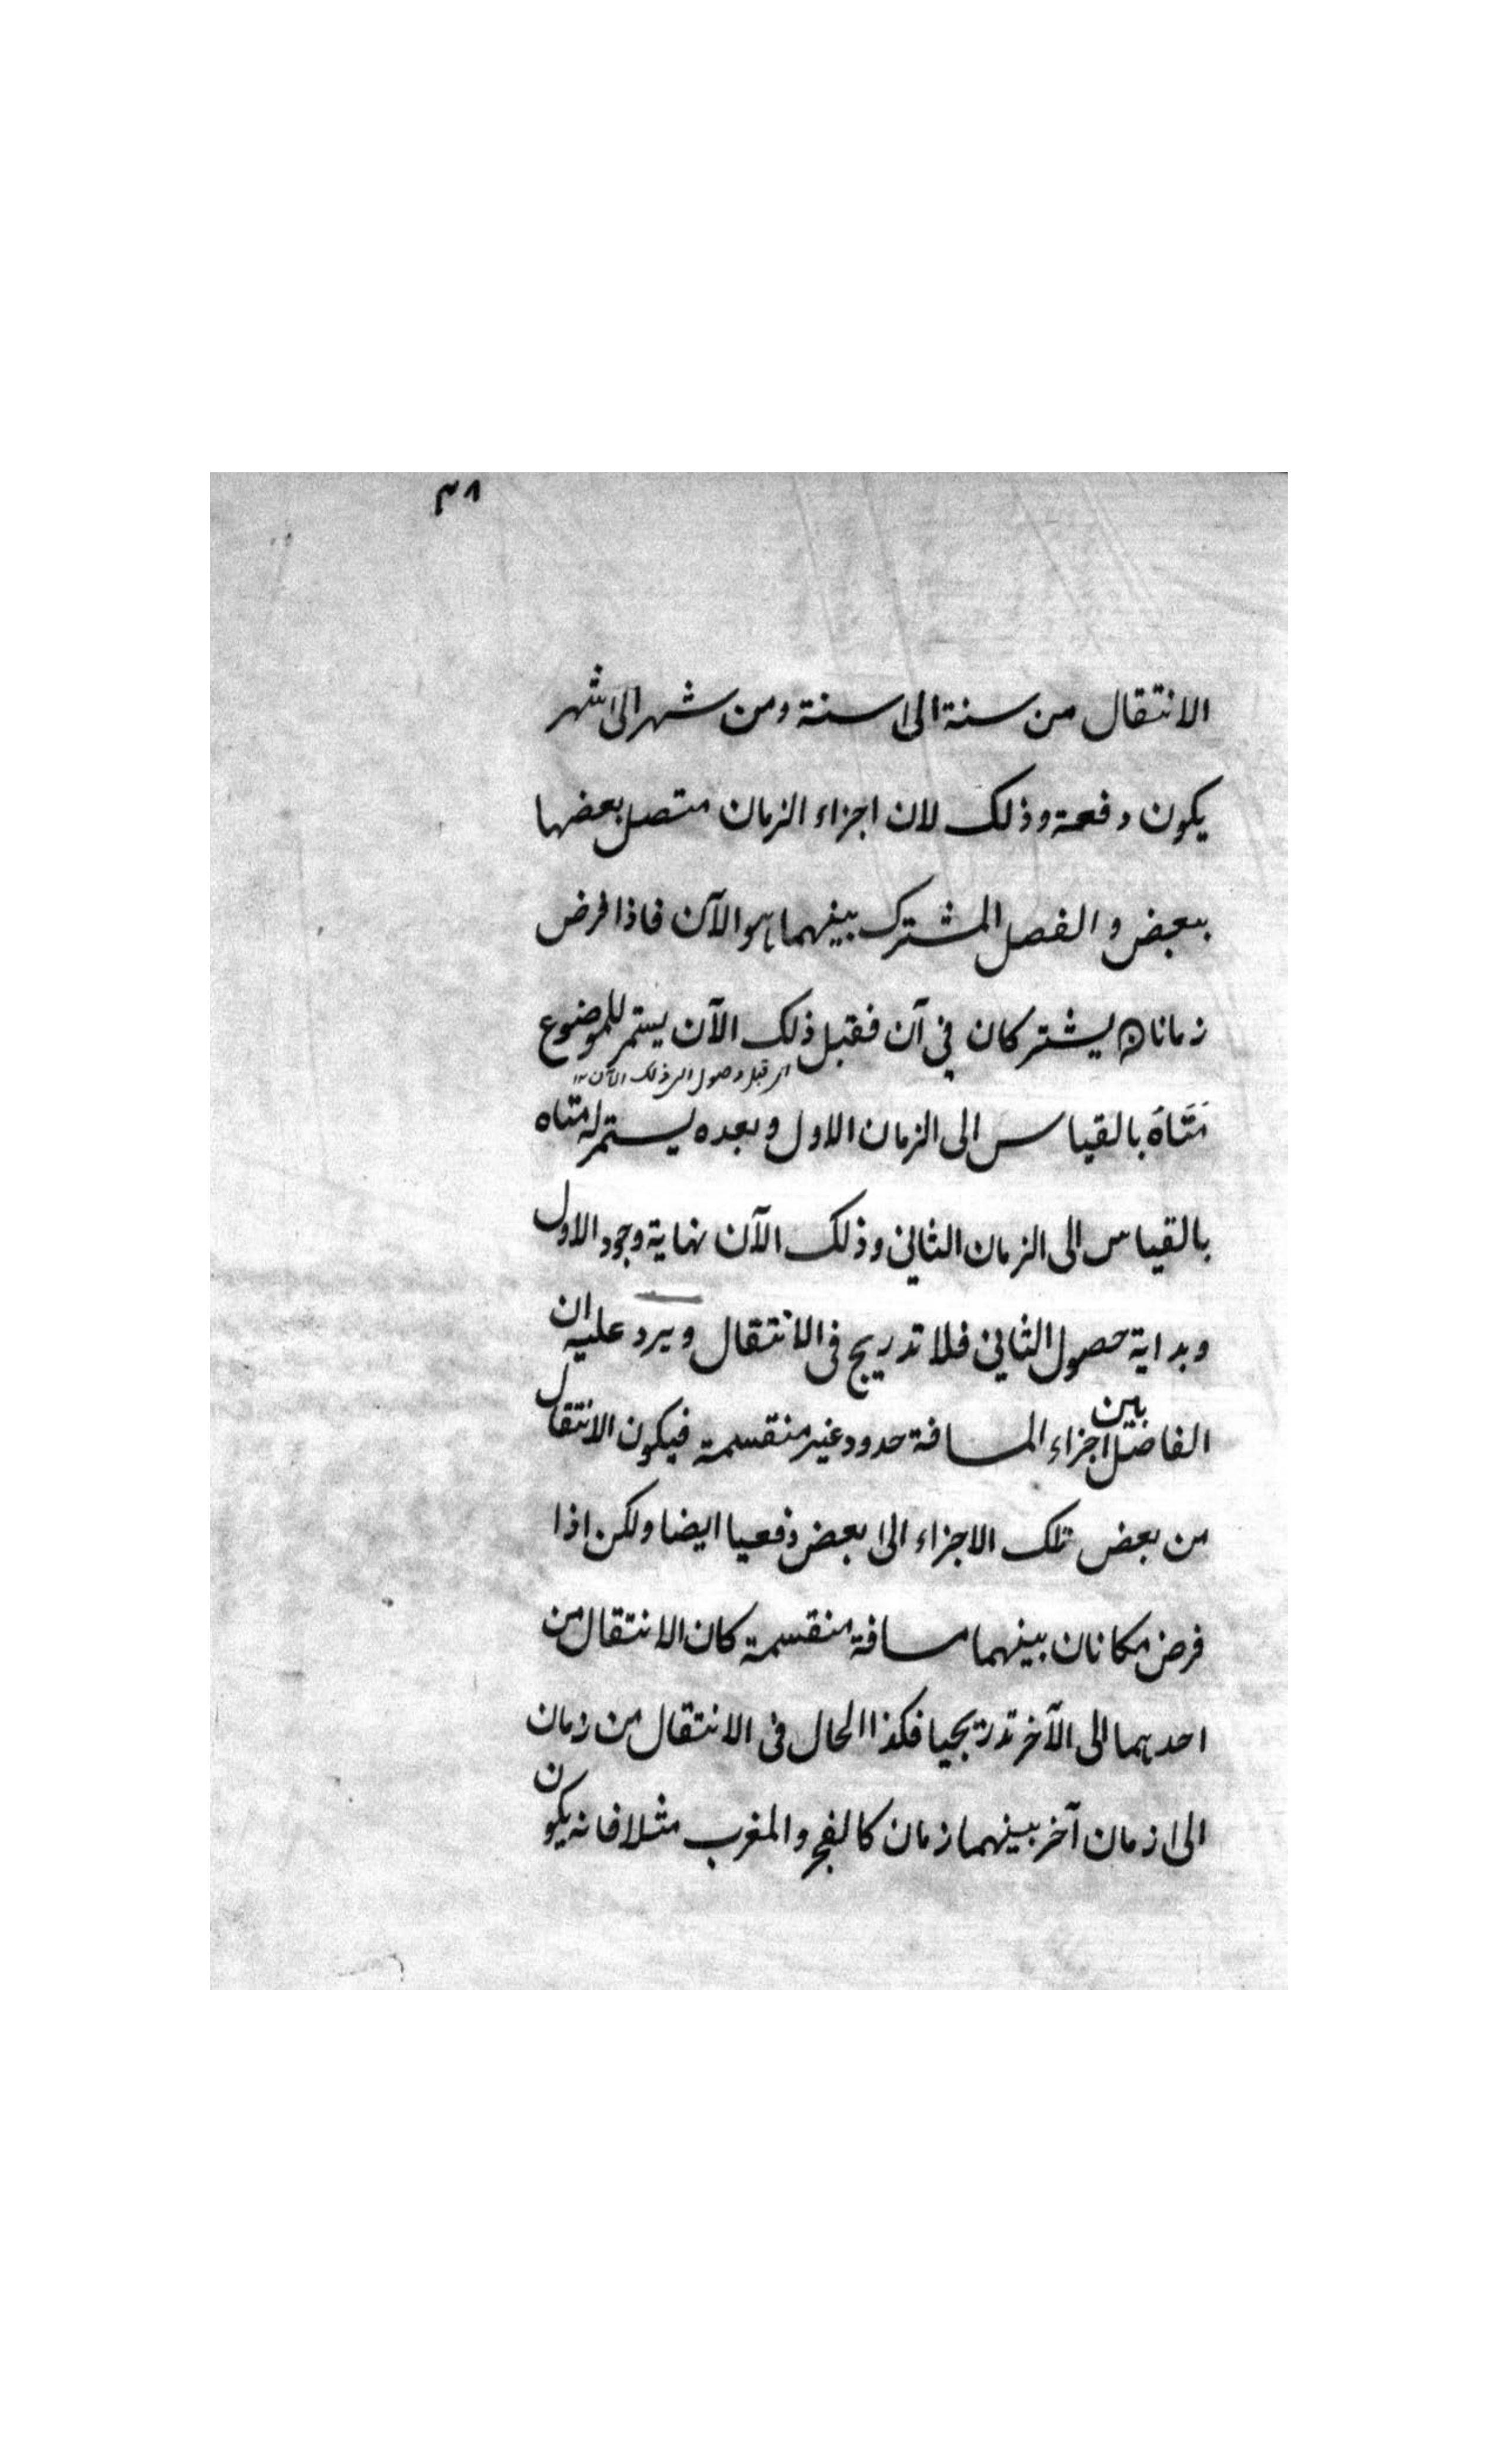 ٣٨
الانتقال من سنة الى سنة ومن شهر الى شهر
يكون دفعة وذلك لان اجزاء الزمان متصل بعضها
ببعض والفصل المشترك بينهما هو الآن فاذا فرض
زمانان يشتركان في آن فقبل ذلك الآن يستمر للموضوع
اى قبل وصول الى ذلك الآن ١٢
مَتَاهُ بالقياس الى الزمان الاول وبعده يستمر له متاه
بالقياس الى الزمان الثاني وذلك الآن نهاية وجود الاول
وبداية حصول الثاني فلا تدريج فى الانتقال ويرد عليه ان
الفاصل بين اجزاء المسافة حدود غير منقسمة فيكون الانتقال
من بعض تلك الاجزاء الى بعض دفعيا ايضا ولكن اذا
فرض مكانان بينهما مسافة منقسمة كان الانتقال من
احدهما الى الآخر تدريجيا فكذا الحال فى الانتقال من زمان
الى زمان آخر بينهما زمان كالفجر والمغرب مثلا فانه يكون